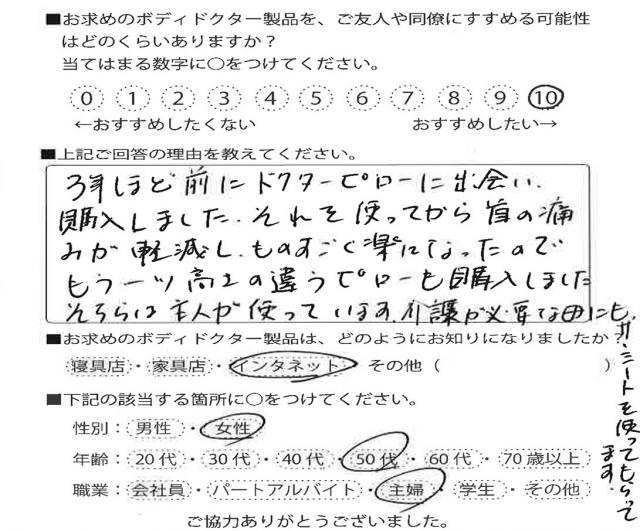 ■お求めのボディドクター製品を、ご友人や同僚にすすめる可能性
はどのくらいありますか？
当てはまる数字に○をつけてください。
0 1 2 3 4 5 6 7 8 9 10
←おすすめしたくない おすすめしたい→
■上記ご回答の理由を教えてください。
3年ほど前にドクターピローに出会い、
購入しました。それを使ってから首の痛
みが軽減し、ものすごく楽になったので
もう一ツ高さの違うピローも購入しました
そちらは主人が使っています。介護が必要な母にも、
ザ・シートを使ってもらって
ます。
■お求めのボディドクター製品は、どのようにお知りになりましたか？
寝具店・家具店・インタネット・その他（ ）
■下記の該当する箇所に○をつけてください。
性別：男性・女性
年齢：20代・30代・40代・50代・60代・70歳以上
職業：会社員・パートアルバイト・主婦・学生・その他
ご協力ありがとうございました。